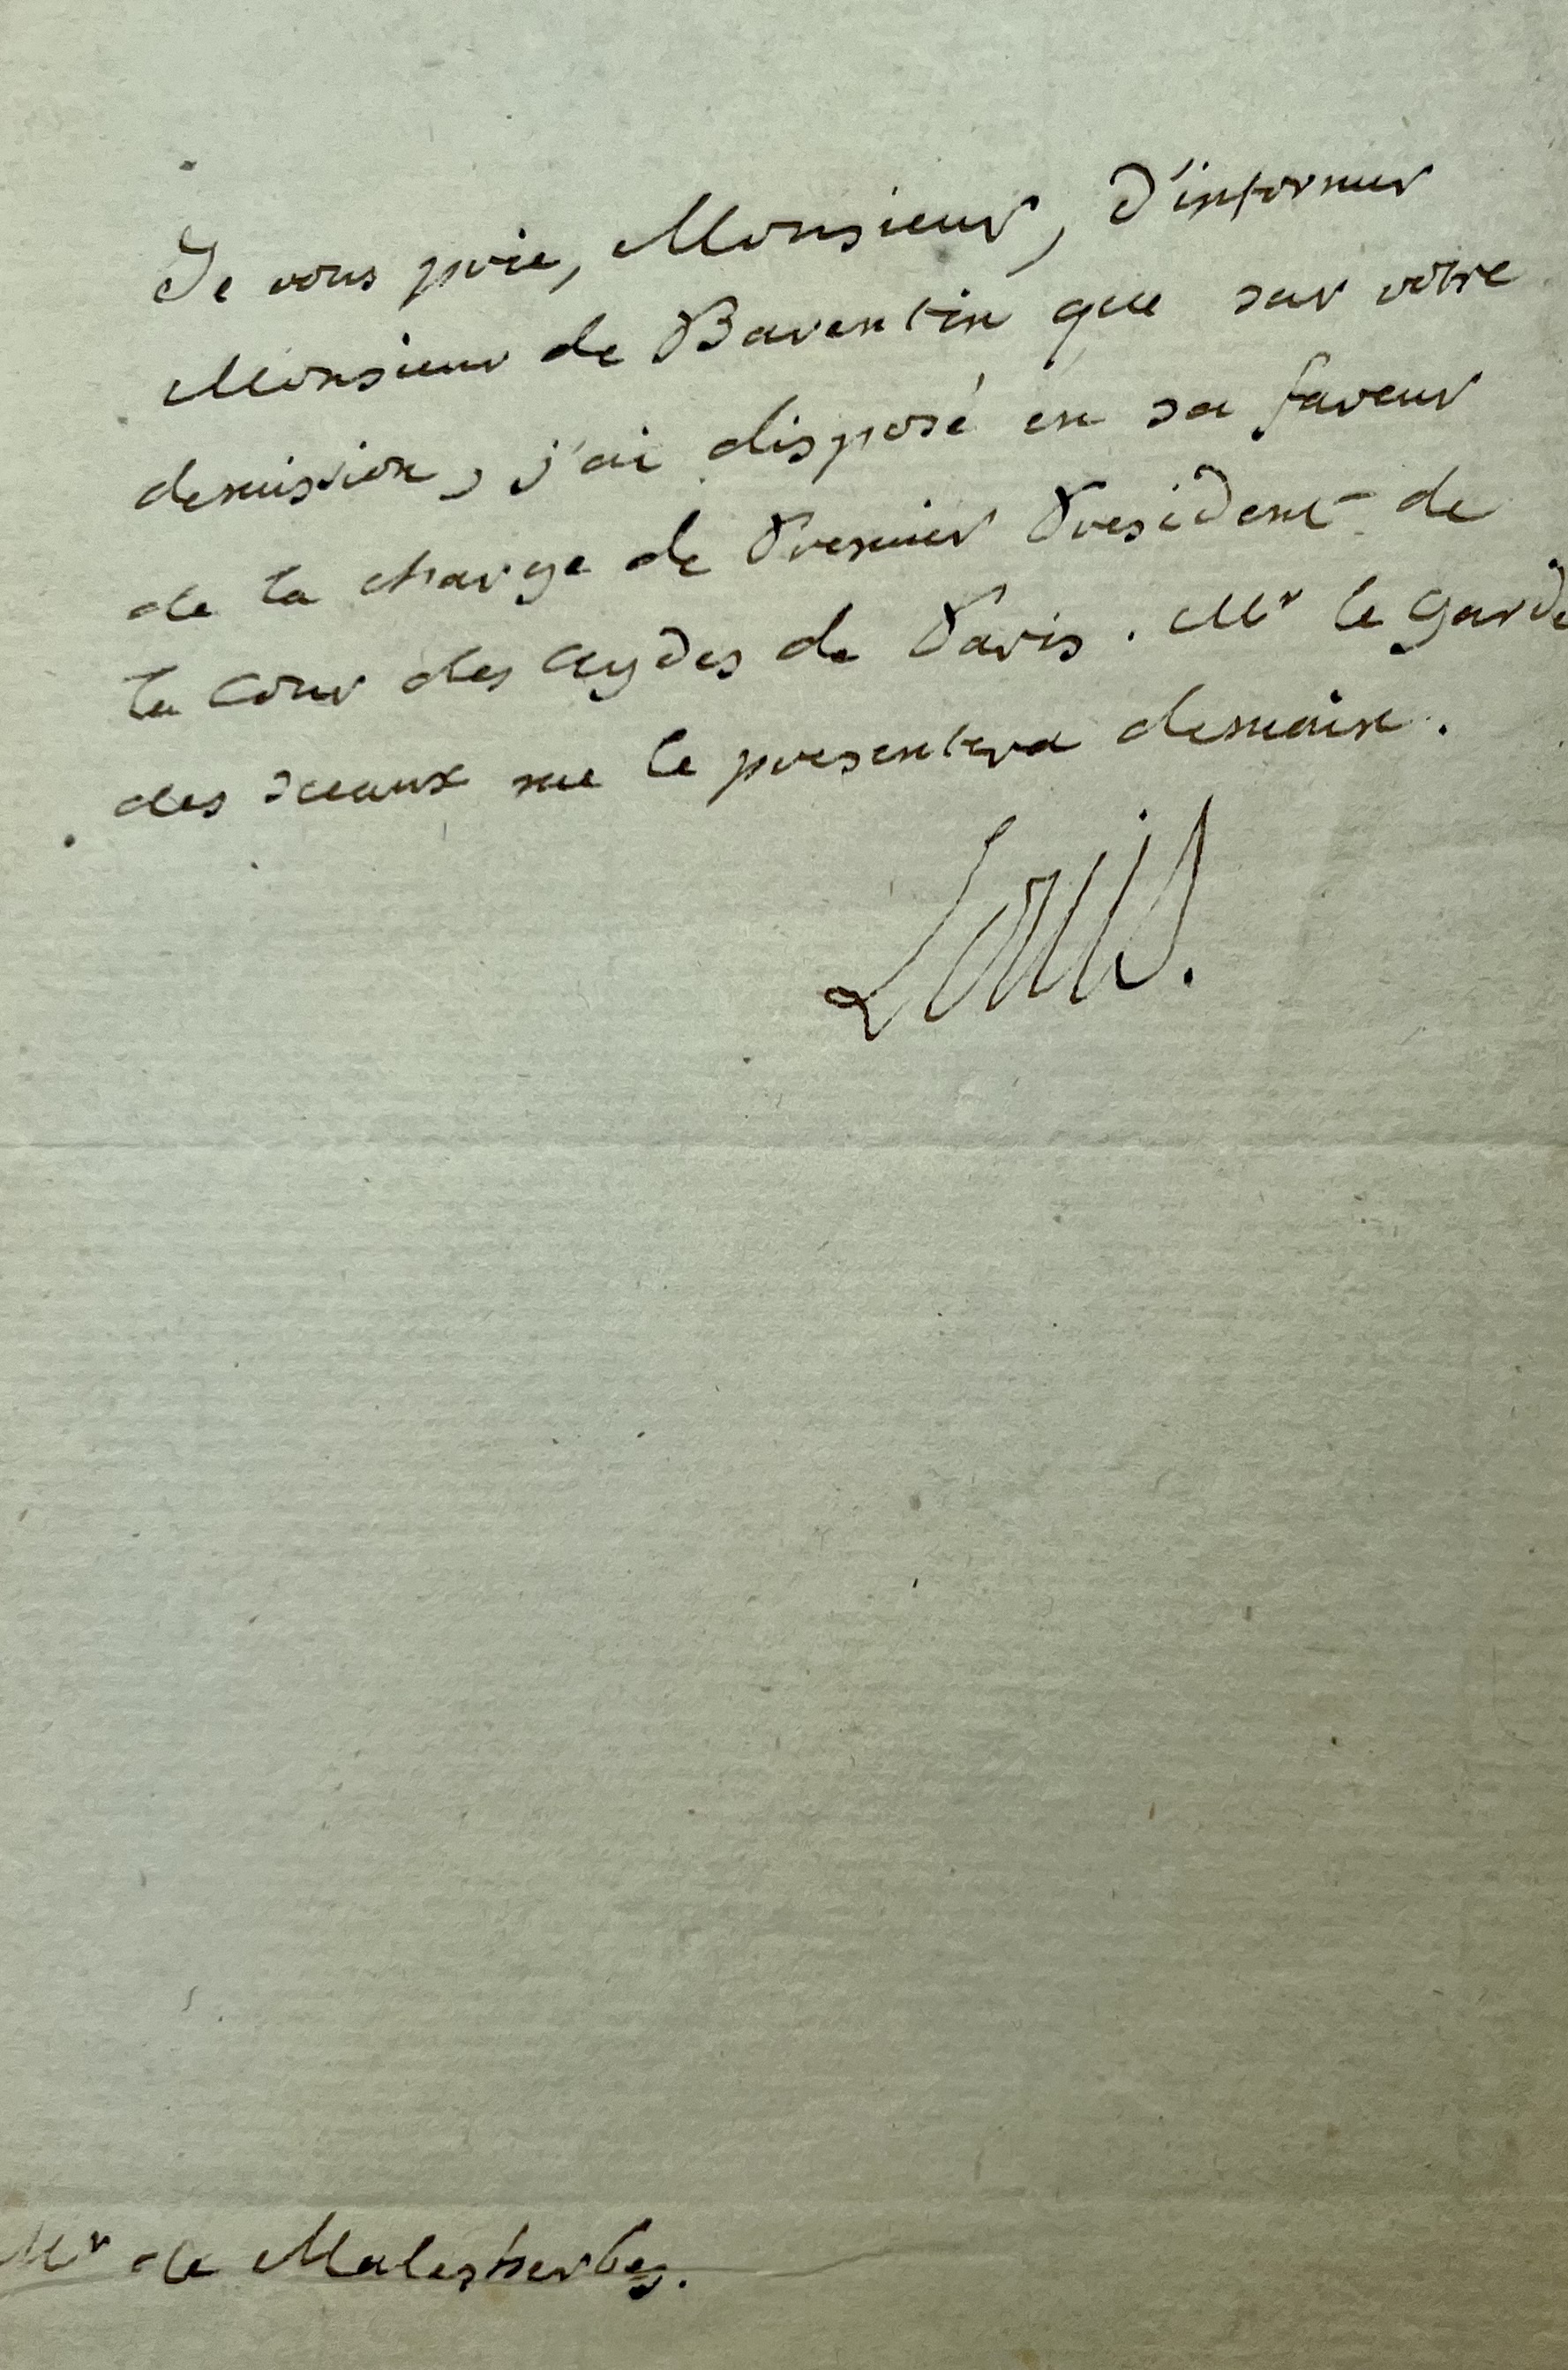 Je vous prie, Monsieur, d'informer
Monsieur de Barentin que sur votre
demission, j'ai disposé en sa faveur
de la charge de Premier President de
la Cour des Aydes de Paris. Mr le Garde
des sceaux me le presentera demain.
Louis.
Mr de Malesherbes.